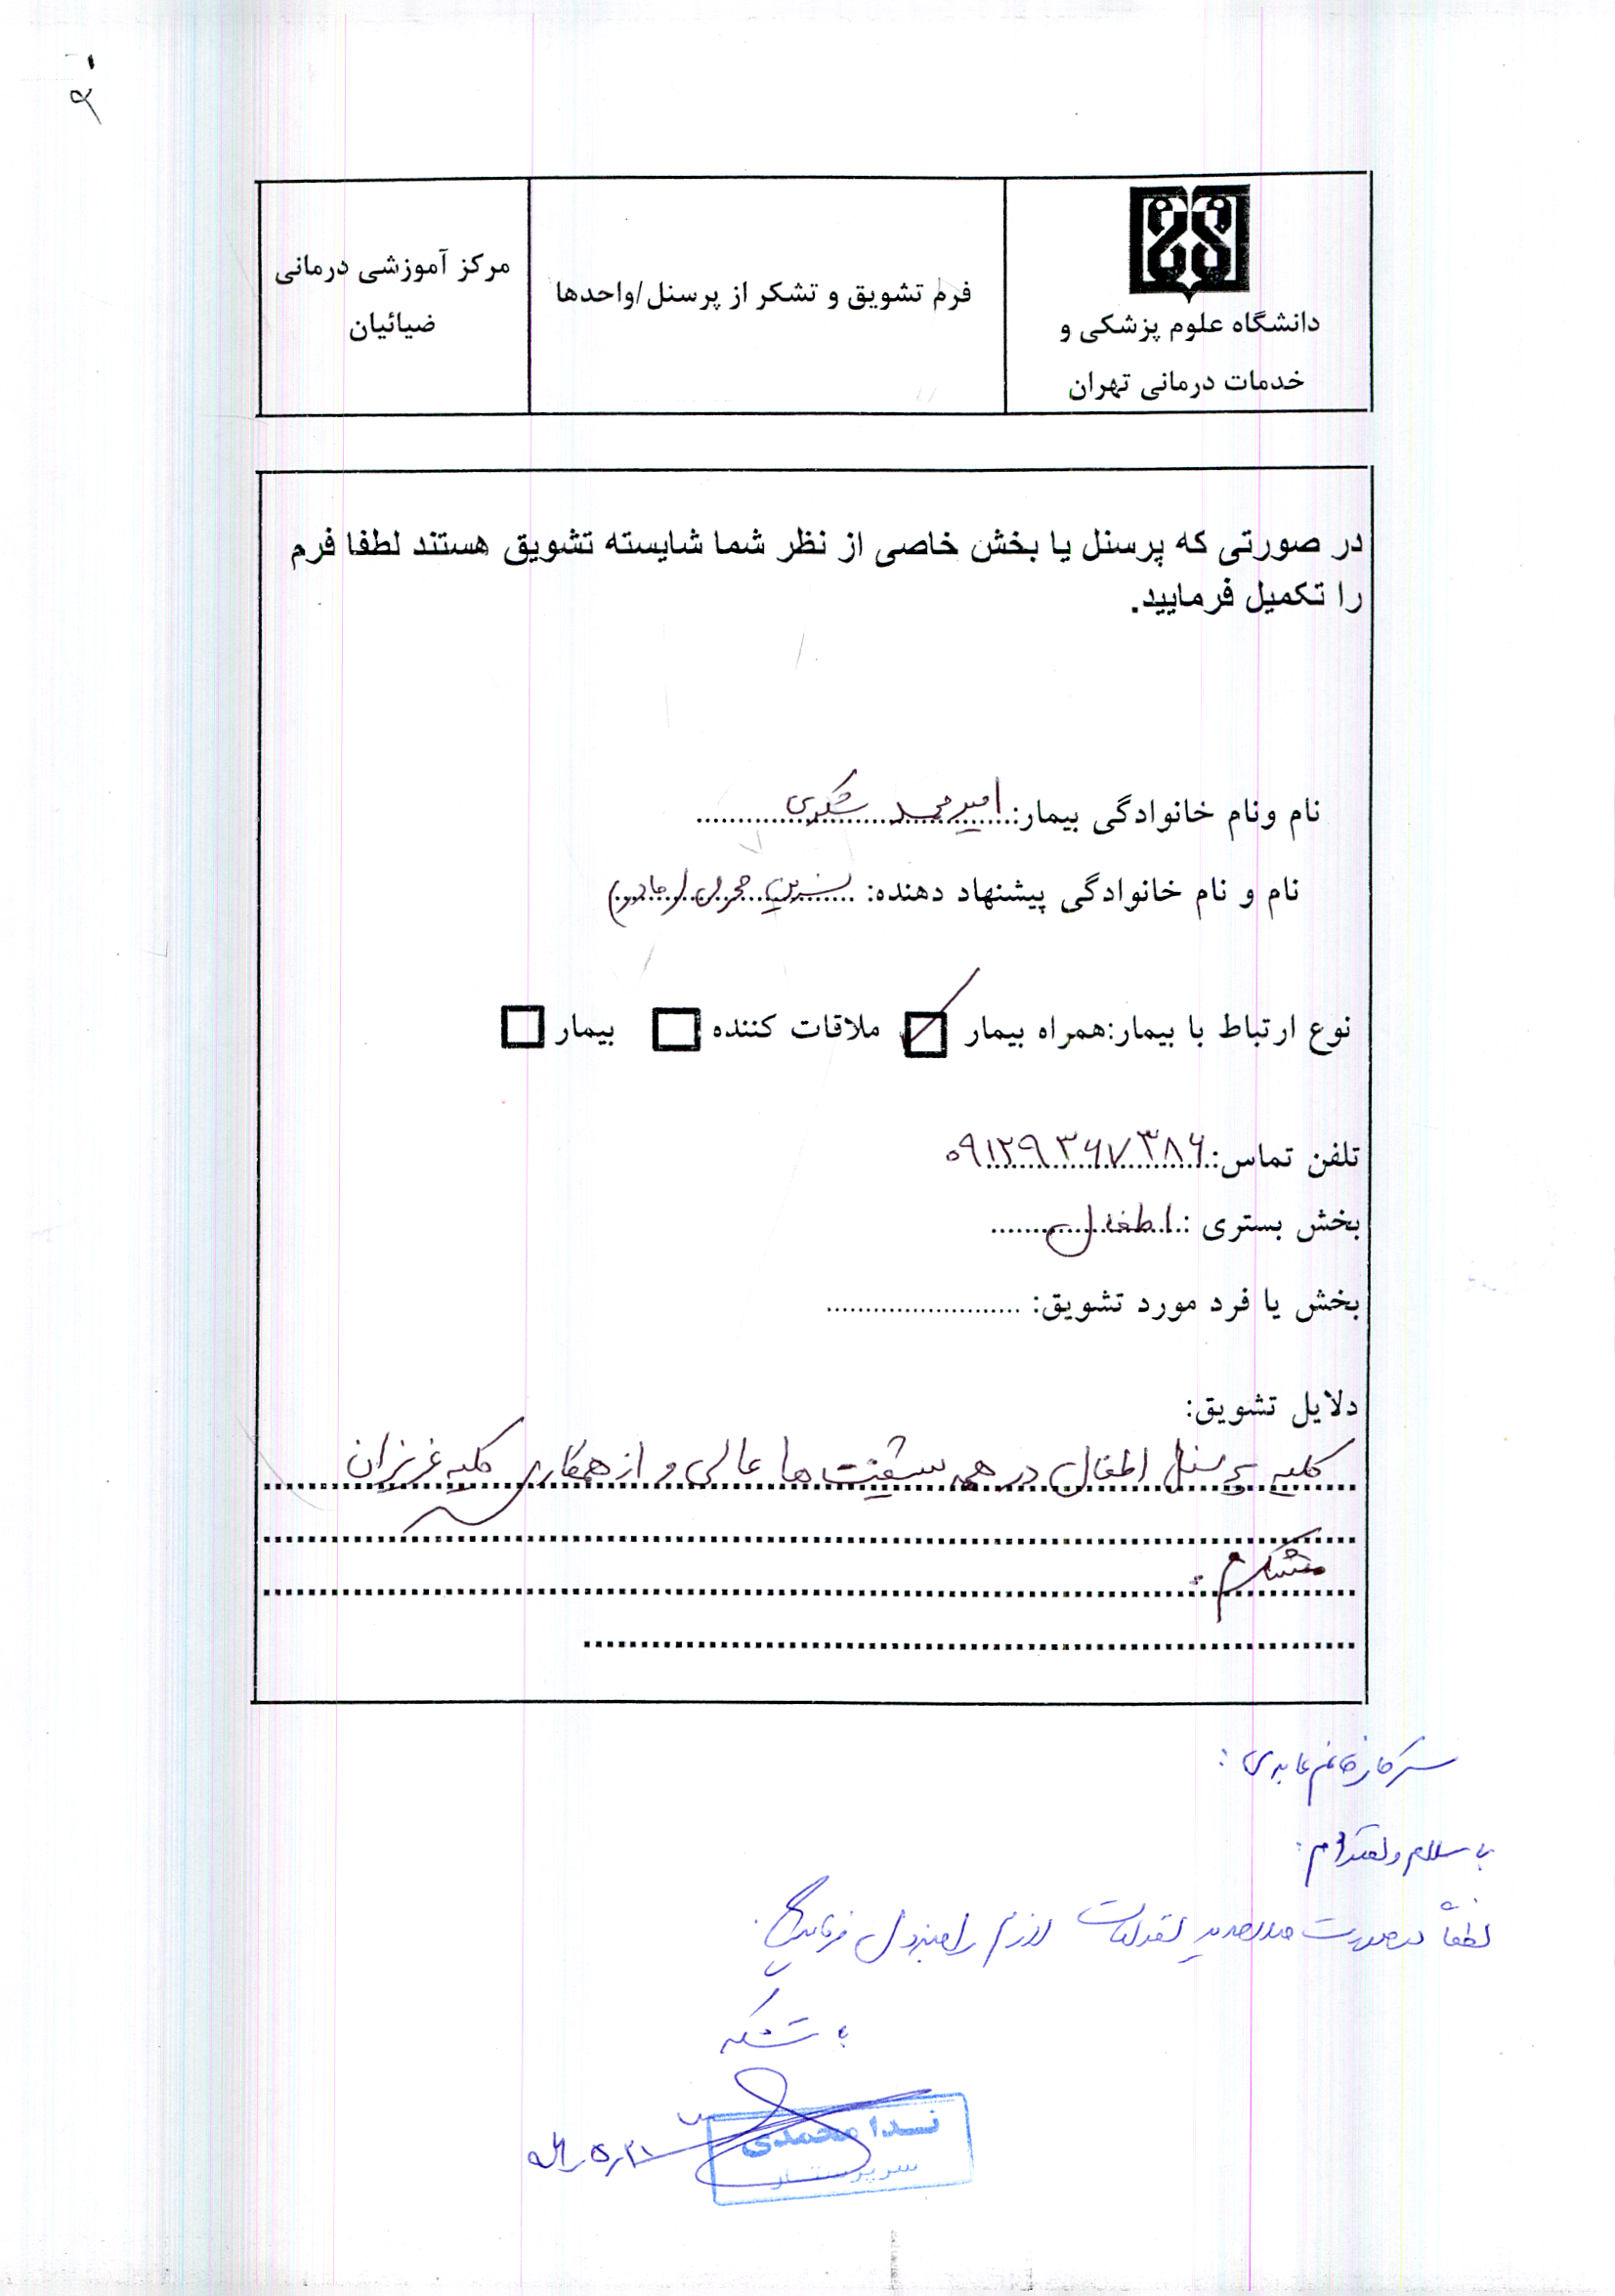 دانشگاه علوم پزشکی و
خدمات درمانی تهران
فرم تشویق و تشکر از پرسنل/واحدها
مرکز آموزشی درمانی
ضیائیان
در صورتی که پرسنل یا بخش خاصی از نظر شما شایسته تشویق هستند لطفا فرم
را تکمیل فرمایید.
نام ونام خانوادگی بیمار: امیرمحمد شکری
نام و نام خانوادگی پیشنهاد دهنده: نسرین (مادر)
نوع ارتباط با بیمار:همراه بیمار ☑ ملاقات کننده ☐ بیمار ☐
تلفن تماس: ۰۹۱۲۹۳۶۷۳۸۶
بخش بستری : اطفال
بخش یا فرد مورد تشویق: ........................
دلایل تشویق:
کلیه پرسنل اطفال در همه شیفت ها عالی و از همکاری کلیه عزیزان
متشکرم.
سرکار خانم عابدی :
با سلام و احترام:
لطفاً درصورت صلاحدید اقدامات لازم را مبذول فرمایید.
با تشکر
ندا محمدی
سرپرستار